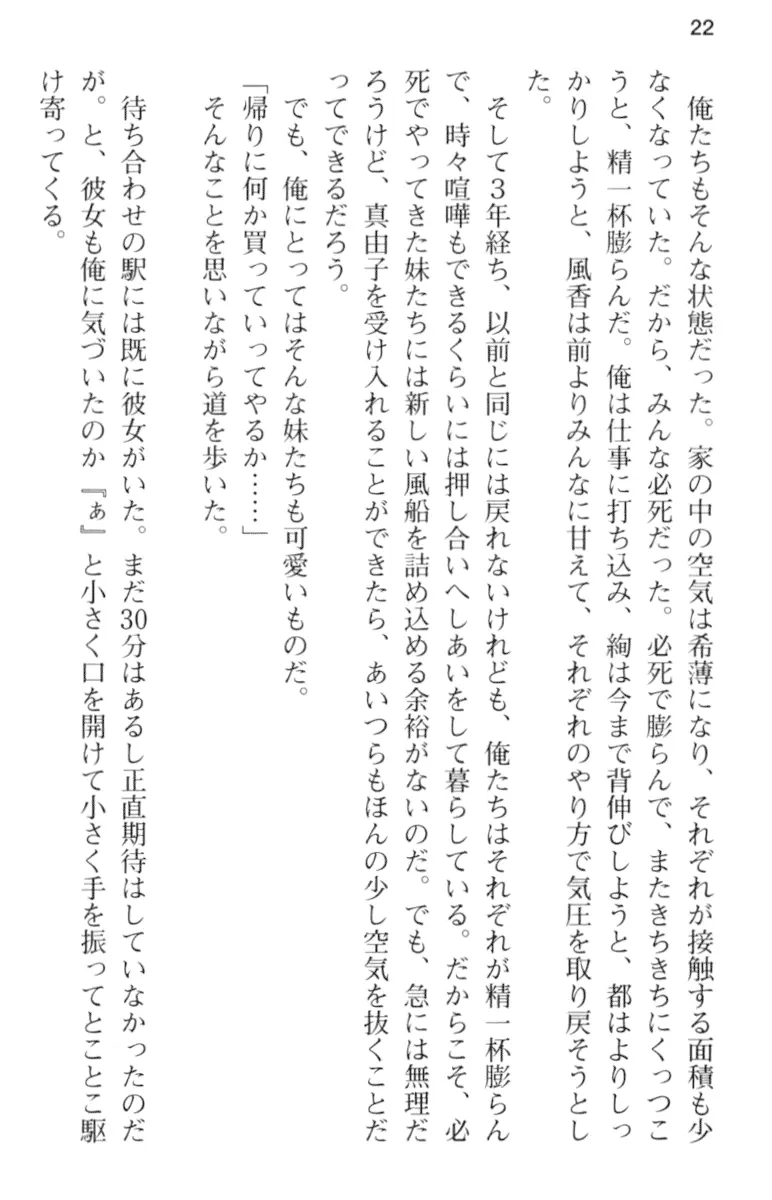 22
俺たちもそんな状態だった。家の中の空気は希薄になり、それぞれが接触する面積も少
なくなっていた。だから、みんな必死だった。必死で膨らんで、またきちきちにくっつこ
うと、精一杯膨らんだ。俺は仕事に打ち込み、絢は今まで背伸びしようと、都はよりしっ
かりしようと、風香は前よりみんなに甘えて、それぞれのやり方で気圧を取り戻そうとし
た。
そして３年経ち、以前と同じには戻れないけれども、俺たちはそれぞれが精一杯膨らん
で、時々喧嘩もできるくらいには押し合いへしあいをして暮らしている。だからこそ、必
死でやってきた妹たちには新しい風船を詰め込める余裕がないのだ。でも、急には無理だ
ろうけど、真由子を受け入れることができたら、あいつらもほんの少し空気を抜くことだ
ってできるだろう。
でも、俺にとってはそんな妹たちも可愛いものだ。
「帰りに何か買っていってやるか……」
そんなことを思いながら道を歩いた。
待ち合わせの駅には既に彼女がいた。まだ30分はあるし正直期待はしていなかったのだ
が。と、彼女も俺に気づいたのか『ぁ』と小さく口を開けて小さく手を振ってとことこ駆
け寄ってくる。